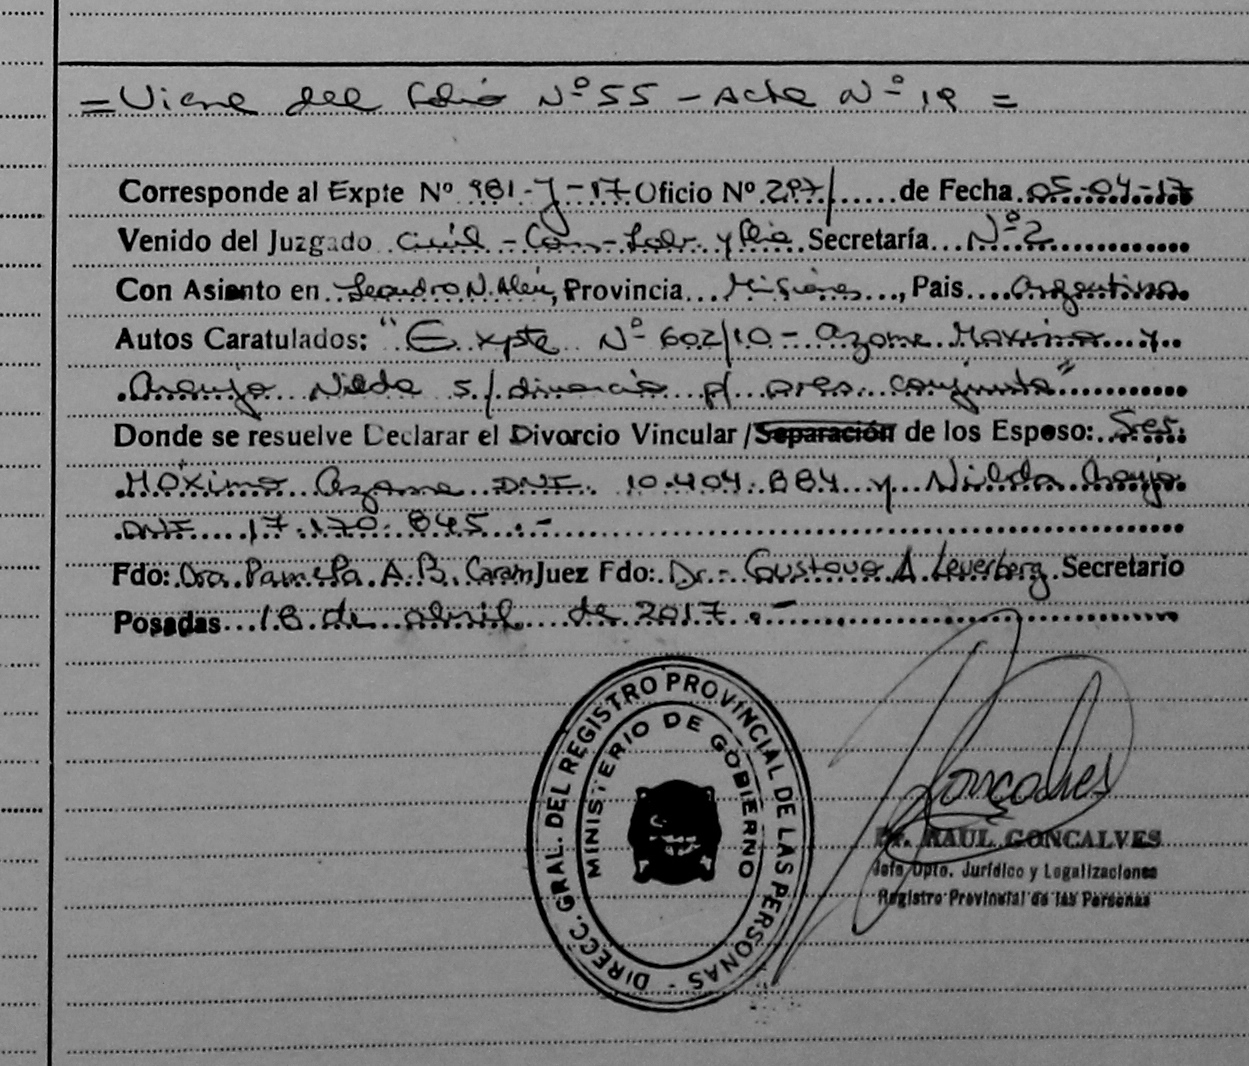 = Viene del folio Nº 55 - Acta Nº 19 =
Corresponde al Expte Nº 981-J-17 Oficio Nº 297/......de Fecha.05-04-17
Venido del Juzgado Civil - Com - Lab. y Flia Secretaría...Nº 2............
Con Asiento en Leandro N. Alem, Provincia...Misiones..., Pais....Argentina
Autos Caratulados: "Expte Nº 602/10 - Azome Maximo y
Araujo Nilda s/ divorcio p/ pres. conjunta"..........
Donde se resuelve Declarar el Divorcio Vincular /Separación de los Esposo:..Sres.
Máximo Azome DNI. 10.404.884 y Nilda Araujo
DNI 17.170.845.-..............................
Fdo: Dra. Pamela A. B. Caram Juez Fdo: Dr.- Gustavo A. Leverberg Secretario
Posadas...18 de abril de 2017.-..............................
DIRECC. GRAL. DEL REGISTRO PROVINCIAL DE LAS PERSONAS -
MINISTERIO DE GOBIERNO
Gonçalves
Dr. RAUL GONCALVES
Jefe Dpto. Jurídico y Legalizaciones
Registro Provincial de las Personas